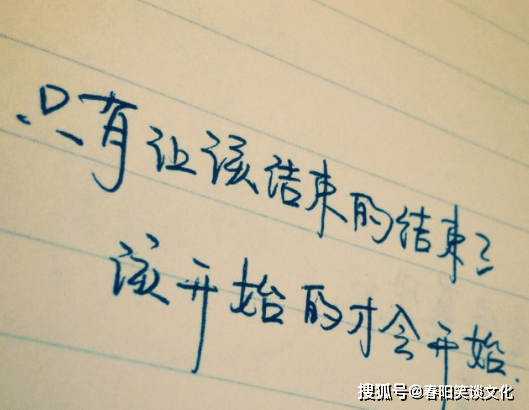 只有让该结束的结束了
该开始的才会开始
搜狐号@春阳笑谈文化